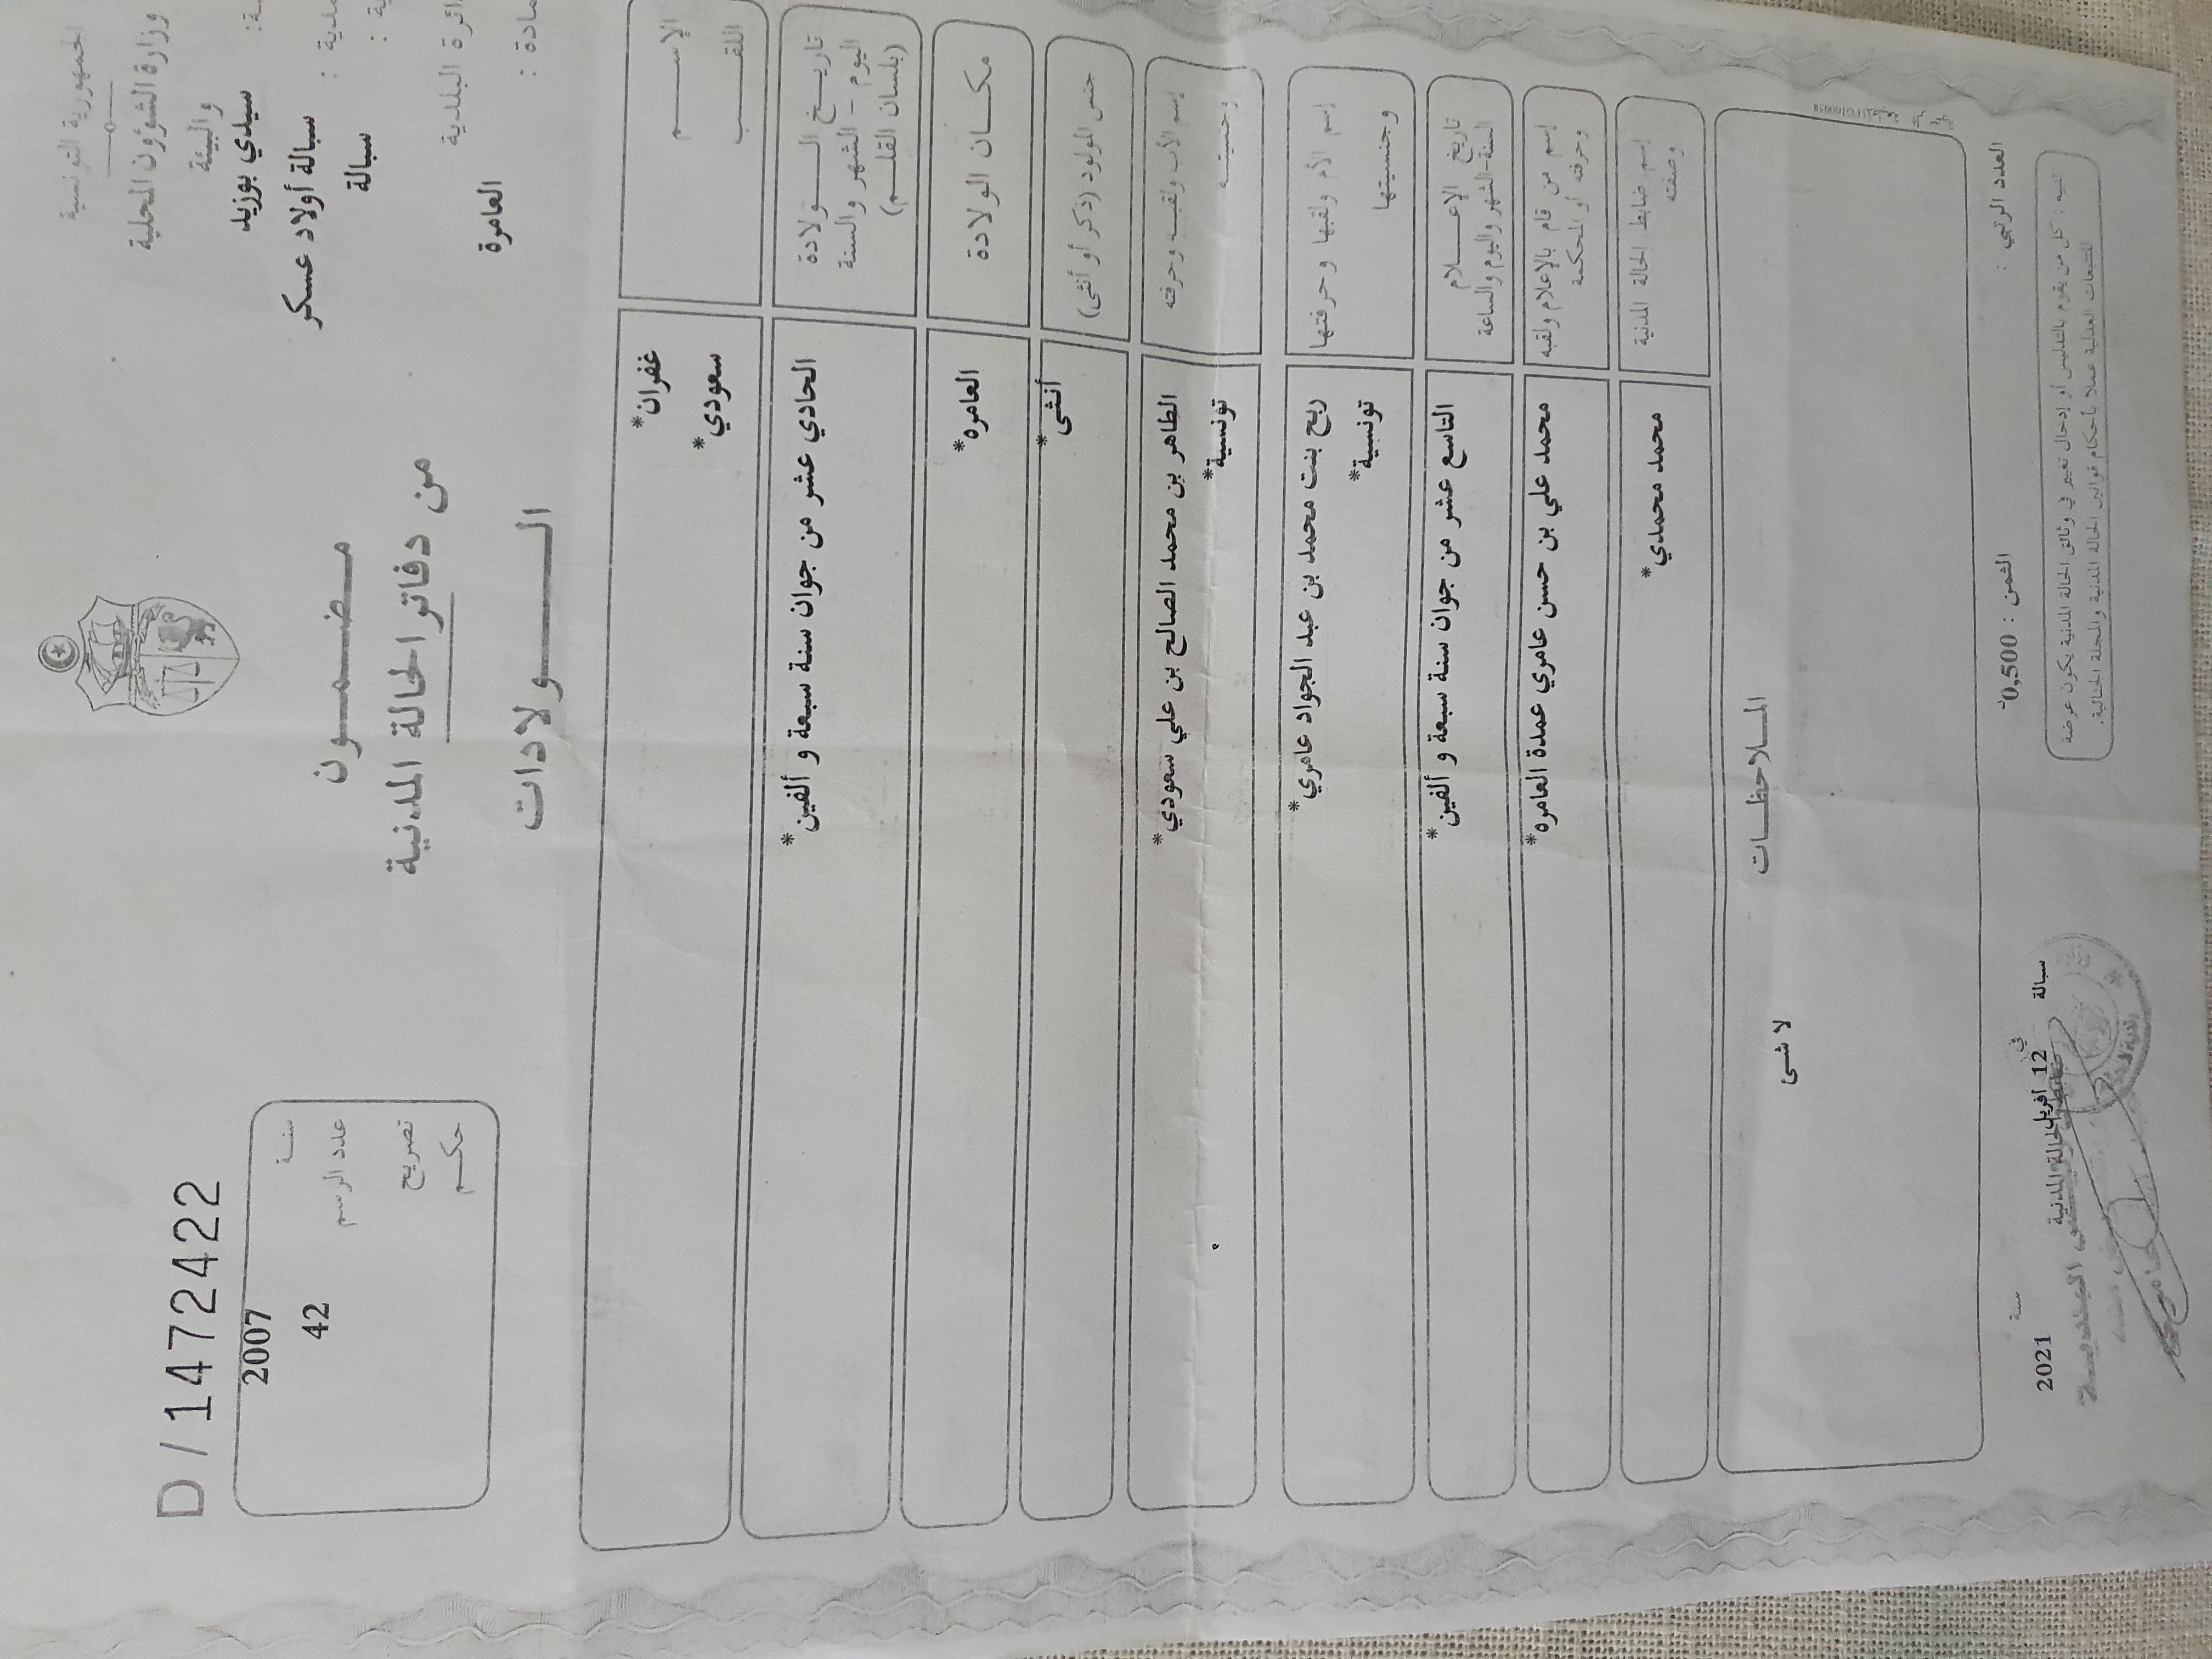 الجمهورية التونسية
وزارة الشؤون المحلية
والبيئة
سيدي بوزيد
سبالة أولاد عسكر
سبالة
دائرة البلدية
العامرة
مضمون
من دفاتر الحالة المدنية
الولادات
D/1472422
سنة 2007
عدد الرسم 42
تصريح
حكم
الإسم غفران*
اللقب سعودي*
تاريخ الولادة
اليوم - الشهر والسنة
(بلسان القلم)
الحادي عشر من جوان سنة سبعة و ألفين*
مكان الولادة العامره*
جنس المولود (ذكر أو أنثى) أنثى*
إسم الأب ولقبه وحرفته الطاهر بن محمد الصالح بن علي سعودي*
وجنسيته تونسية*
إسم الأم ولقبها وحرفتها ربح بنت محمد بن عبد الجواد عامري*
وجنسيتها تونسية*
تاريخ الإعلام
السنة-الشهر واليوم والساعة
التاسع عشر من جوان سنة سبعة و ألفين*
إسم من قام بالإعلام ولقبه
وحرفته أو المحكمة
محمد علي بن حسن عامري عمدة العامره*
إسم ضابط الحالة المدنية
وصفته
محمد محمدي*
الملاحظات
لا شى
العدد الرتبي :
الثمن : 0,500
سبالة في 12 افريل سنة 2021
ضابط الحالة المدنية
تنبيه : كل من يقوم بالتدليس أو إدخال تغيير في وثائق الحالة المدنية يكون عرضة
للتتبعات العدلية عملا بأحكام قوانين الحالة المدنية والمجلة الجنائية.